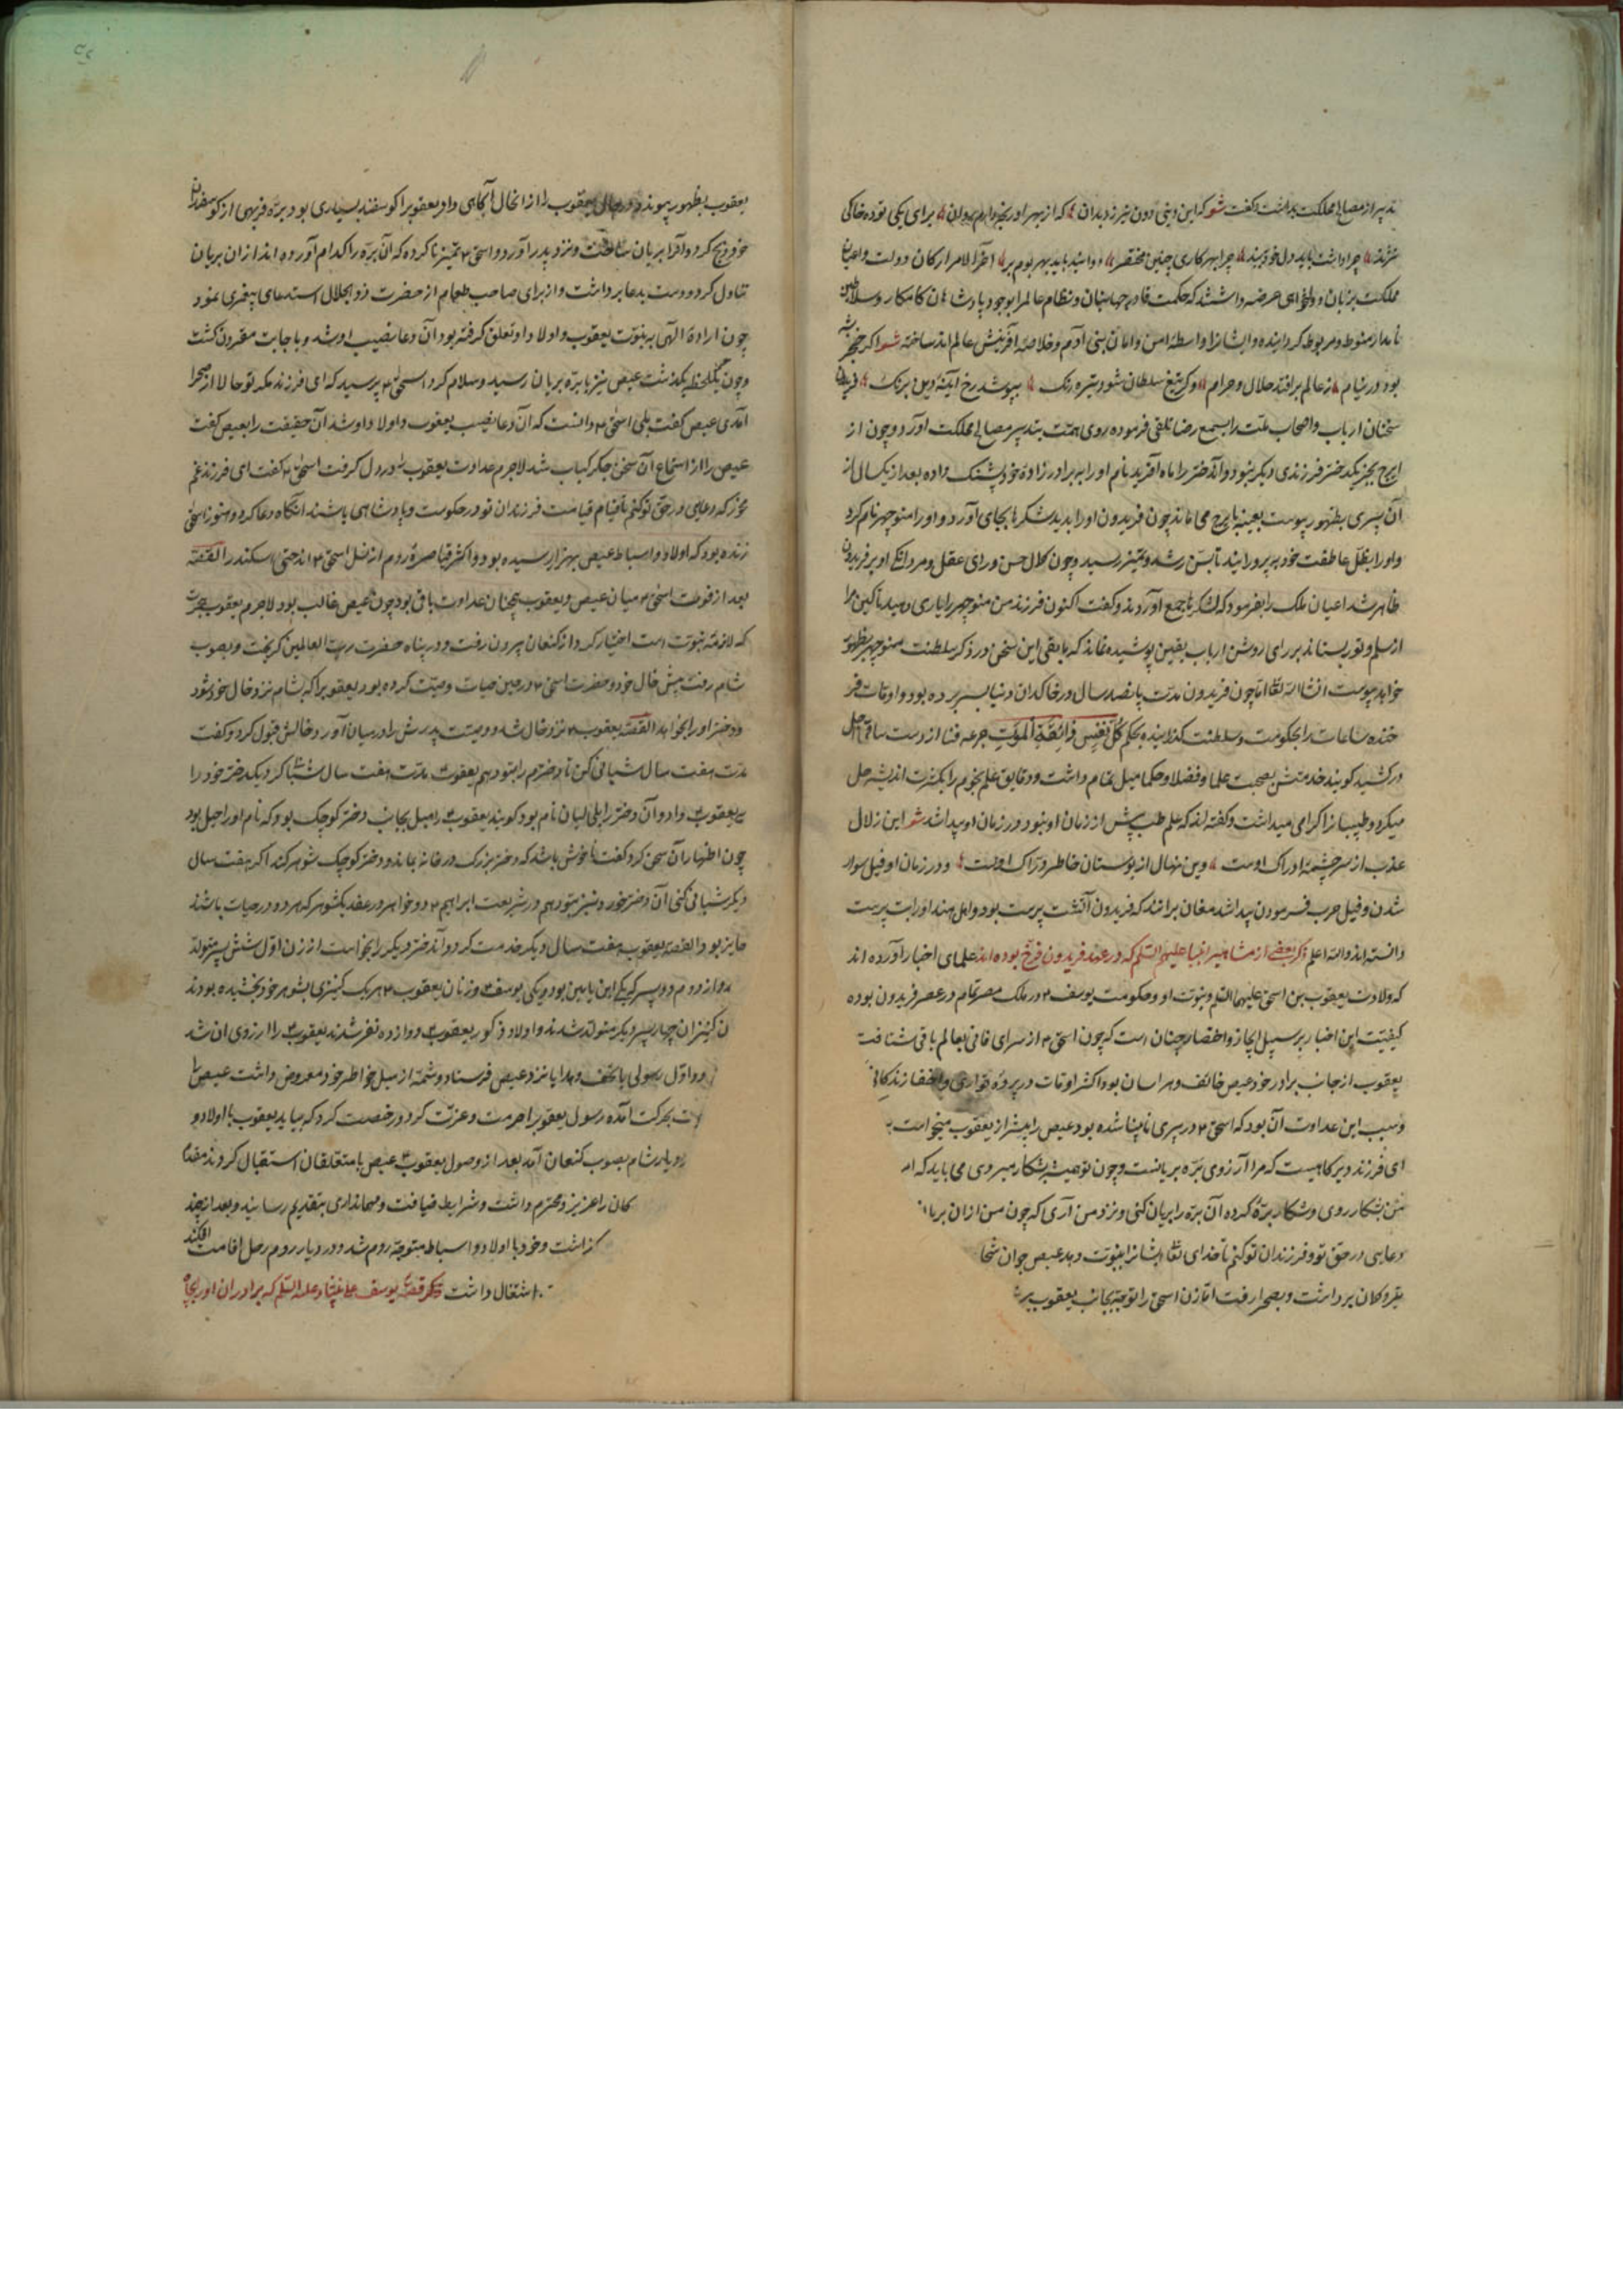 تدبیر از مصالح مملکت بداشت و گفت شعر که این دینی دون نیرزد بدان که از بهر او
نژند چرا داشت باید دل خود ببند چرا بهر کاری چنین مختصر آخر الامر ارکان دولت و اعیان
مملکت بزبان دولتخواهی عرضه داشتند که حکمت قادر جهانبان و نظام عالم را بوجود پادشاهان کامکار و سلاطین
نامدار منوط و مربوط کردانیده و ایشانرا واسطهٔ امن و امان بنی آدم و خلاصهٔ آفرینش عالم ساخته شعر اکر خنجر شه
بود در نیام ز عالم برافتد حلال و حرام وکر تیغ سلطان شود تیره رنک بپوشد رخ آینهٔ دین بزنک فریدون
سخنان ارباب و اصحاب ملت را بسمع رضا تلقی فرموده روی همت بتدبیر مصالح مملکت آورد و چون از
ایرج بجز یکدختر فرزندی دیکر نبود و آندختر را ماه آفرید نام او را ببرادرزادهٔ خود پشنک داده بعد از یکسال از
آن پسری بظهور پیوست بعینه بایرج می ماند چون فریدون او را بدید شکرها بجای آورد و او را منوچهر نام کرد
و او را بظل عاطفت خود بپرورانید تا بسن رشد و تمیز رسید و چون کمال حسن و رای عقل و مردانکی او بر فریدون
ظاهر شد اعیان ملک را بفرمود که لشکرها جمع آوردند و گفت اکنون فرزند من منوچهر را یاری دهید تا کین مرا
از سلم و تور بستاند بر رای روشن ارباب یقین پوشیده نماند که مابقی این سخن در ذکر سلطنت منوچهر بظهور
خواهد پیوست انشا الله تعالی اما چون فریدون مدت پانصد سال در خاکدان دنیا بسر برده بود و اوقات فر
خنده ساعات را بحکومت و سلطنت کذرانیده بحکم کُلُّ نَفْسٍ ذَائِقَةُ الْمَوْتِ جرعهٔ فنا از دست ساقی اجل
درکشید کویند خدمتش بصحبت علما و فضلا و حکما میل تمام داشت و دقایق علم نجوم را بکثرت اندیشه حل
میکرد و طبیبانرا کرامی میداشت و گفته اند که علم طب پیش از زمان او نبود در زمان او پیدا شد شعر این زلال
عذب از سرچشمهٔ ادراک اوست وین نهال از بوستان خاطر دراک اوست و در زمان او فیل سوار
شدن و فیل حرب فرمودن پیدا شد مغان برانند که فریدون آتش پرست بود و اهل هند او را بت پرست
دانسته اند والله اعلم ذکر بعضی از مشاهیر انبیا علیهم السلم که در عهد فریدون فرخ بوده اند علمای اخبار آورده اند
که ولادت یعقوب بن اسحق علیهما السلم و نبوت او و حکومت یوسف ع در ملک مصر تمام در عصر فریدون بوده
کیفیت این اخبار بر سبیل ایجاز و اختصار چنان است که چون اسحق ع از سرای فانی بعالم باقی شتافت
یعقوب از جانب برادر خود عیص خائف و هراسان بود و اکثر اوقات در پردهٔ تواری و اختفا زندکانی
و سبب این عداوت آن بود که اسحق ع در پیری نابینا شده بود عیص را بیشتر از یعقوب میخواست
ای فرزند دیرکاهیست که مرا آرزوی برهٔ بریانست و چون تو همیشه بشکار میروی می باید که
بشکار روی و شکار برهٔ کرده آن بره را بریان کنی و نزد من آری که چون من از آن بریان
دعایی در حق تو و فرزندان تو کنم تا خدای تعالی ایشانرا نبوت دهد عیص چون
تیر و کمان برداشت و بصحرا رفت اما زن اسحق را توجه بجانب یعقوب
یعقوب بظهور پیوندد در حال یعقوب را از انحال آکاهی داد و یعقوبرا کوسفند بسیاری بود برهٔ فربهی از کوسفندان
خود ذبح کرد و آنرا بریان ساخت و نزد پدر آورد و اسحق ع تمیز ناکرده که آن بره را کدام آورده اند از ان بریان
تناول کرد و دست بدعا برداشت و از برای صاحب طعام از حضرت ذو الجلال استدعای پیغمبری نمود
چون ارادهٔ الهی به نبوت یعقوب و اولاد او تعلق کرفته بود آن دعا نصیب او شد و باجابت مقرون کشت
و چون یکلحظه بکذشت عیص نیز با برهٔ بریان رسید و سلام کرد اسحق ع پرسید که ای فرزند مکر تو حالا از صحرا
آمدی عیص گفت بلی اسحق ع دانست که آن دعا نصیب یعقوب و اولاد او شد آن حقیقت را بعیص گفت
عیص را از استماع آن سخن جکر کباب شد لاجرم عداوت یعقوب را در دل کرفت اسحق ع گفت ای فرزند غم
مخور که دعایی در حق تو کنم تا قیام قیامت فرزندان تو در حکومت و پادشاهی باشند آنکاه دعا کرد و هنوز اسحق
زنده بود که اولاد و اسباط عیص بهزار رسیده بود و اکثر قیاصرهٔ روم از نسل اسحق ع اند حتی سکندر القصه
بعد از فوت اسحق ع میان عیص و یعقوب همچنان عداوت باقی بود چون عیص غالب بود لاجرم یعقوب هجرت
که لازمهٔ نبوت است اختیار کرد از کنعان بیرون رفت و در پناه حضرت رب العالمین کریخت و بصوب
شام رفت پیش خال خود و حضرت اسحق ع در حین حیات وصیت کرده بود یعقوبرا که بشام نزد خال خود شود
و دختر او را بخواهد القصه یعقوب ع نزد خال شد و وصیت پدرش را در میان آورد خالش قبول کرد و گفت
مدت هفت سال شبانی کن تا دخترم را بتو دهم یعقوب ع مدت هفت سال شبانی کرد یکدختر خود را
به یعقوب ع داد و آن دختر را لیان نام بود کویند یعقوب ع را میل بجانب دختر کوچک بود که نام او راحیل بود
چون اظهار آن سخن کرد گفت ناخوش باشد که دختر بزرک در خانه بماند و دختر کوچک شوهر کند اکر هفت سال
دیکر شبانی کنی آن دختر خورد نیز بتو دهم در شریعت ابراهیم ع دو خواهر در عقد یکشوهر که هر دو در حیات باشند
جایز بود القصه یعقوب هفت سال دیکر خدمت کرد و آندختر دیکر را بخواست از زن اول شش پسر متولد
و از دوم دو پسر که یکی ابن یامین بود و یکی یوسف ع و زنان یعقوب ع هر یک کنیزی بشوهر خود بخشیده بودند
کنیزان چهار پسر دیکر متولد شدند و اولاد ذکور یعقوب ع دوازده نفر شدند یعقوب ع را آرزوی آن شد
اول رسولی با تحف و هدایا نزد عیص فرستاد و شمهٔ از میل خواطر خود معروض داشت عیص را
بحرکت آمده رسول یعقوبرا حرمت و عزت کرد و رخصت کرد که بیاید یعقوب با اولاد و
دیار شام بصوب کنعان آمد بعد از وصول یعقوب ع عیص با متعلقان استقبال کردند
کان را عزیز و محترم داشت و شرایط ضیافت و مهمانداری بتقدیم رسانید و بعد از چند
کذاشت و خود با اولاد و اسباط متوجه روم شد و در دیار روم رحل اقامت افکند
اشتغال داشت ذکر قصهٔ یوسف علی نبینا و علیه السلم که برادران او را بچاه